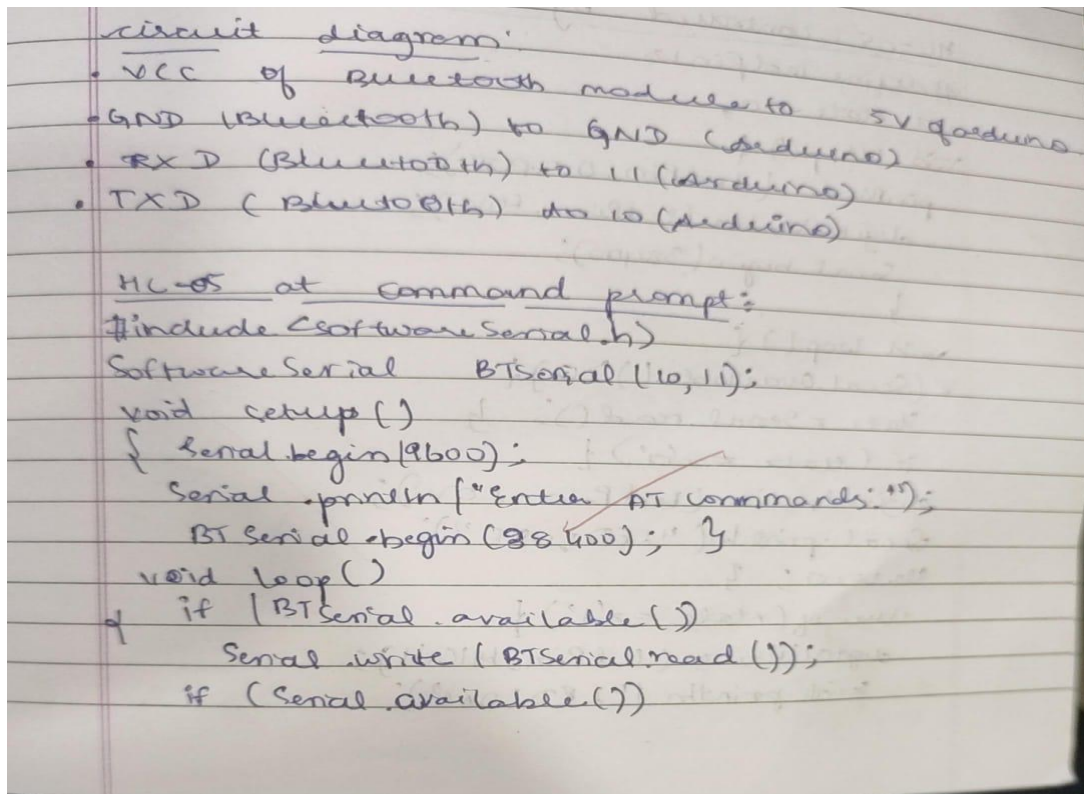 circuit diagram:
• VCC of Bluetooth module to 5V of arduino
• GND (Bluetooth) to GND (Arduino)
• RXD (Bluetooth) to 11 (Arduino)
• TXD (Bluetooth) to 10 (Arduino)
HC-05 at command prompt:
#include <software Serial.h>
Software Serial BTSerial (10,11);
void setup()
{ Serial.begin(9600);
Serial.println("Enter AT commands:");
BT Serial.begin(38400); }
void loop()
{ if (BTSerial.available())
Serial.write (BTSerial.read());
if (Serial.available())